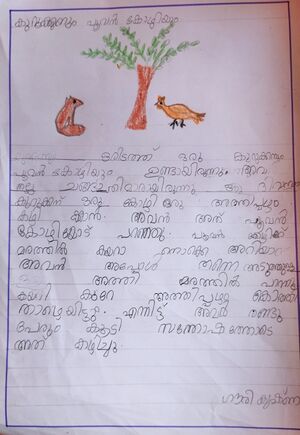 കുറുക്കനും പൂവൻ കോഴിയും
ഒരിടത്ത് ഒരു കുറുക്കനും
പൂവൻ കോഴിയും ഉണ്ടായിരുന്നു. അവ
ചങ്ങാതിമാരായിരുന്നു ഒരു ദിവസം
കുറുക്കന് ഒരു കൊതി ഒരു അത്തിപ്പഴം
കഴിക്കാൻ. അവൻ അത് പൂവൻ
കോഴിയോട് പറഞ്ഞു. പൂവൻ കോഴിക്ക്
മരത്തിൽ കയറാ നൊക്കെ അറിയാം
അവൻ അപ്പോൾ തന്നെ അടുത്തുള്ള
അത്തി മരത്തിൽ പറന്നു
കയറി കുറേ അത്തിപ്പഴം കൊത്തി
താഴെയിട്ടു. എന്നിട്ട് അവർ രണ്ടു
പേരും കൂടി സന്തോഷത്തോടെ
അത് കഴിച്ചു.
ഗൗരി കൃഷ്ണ